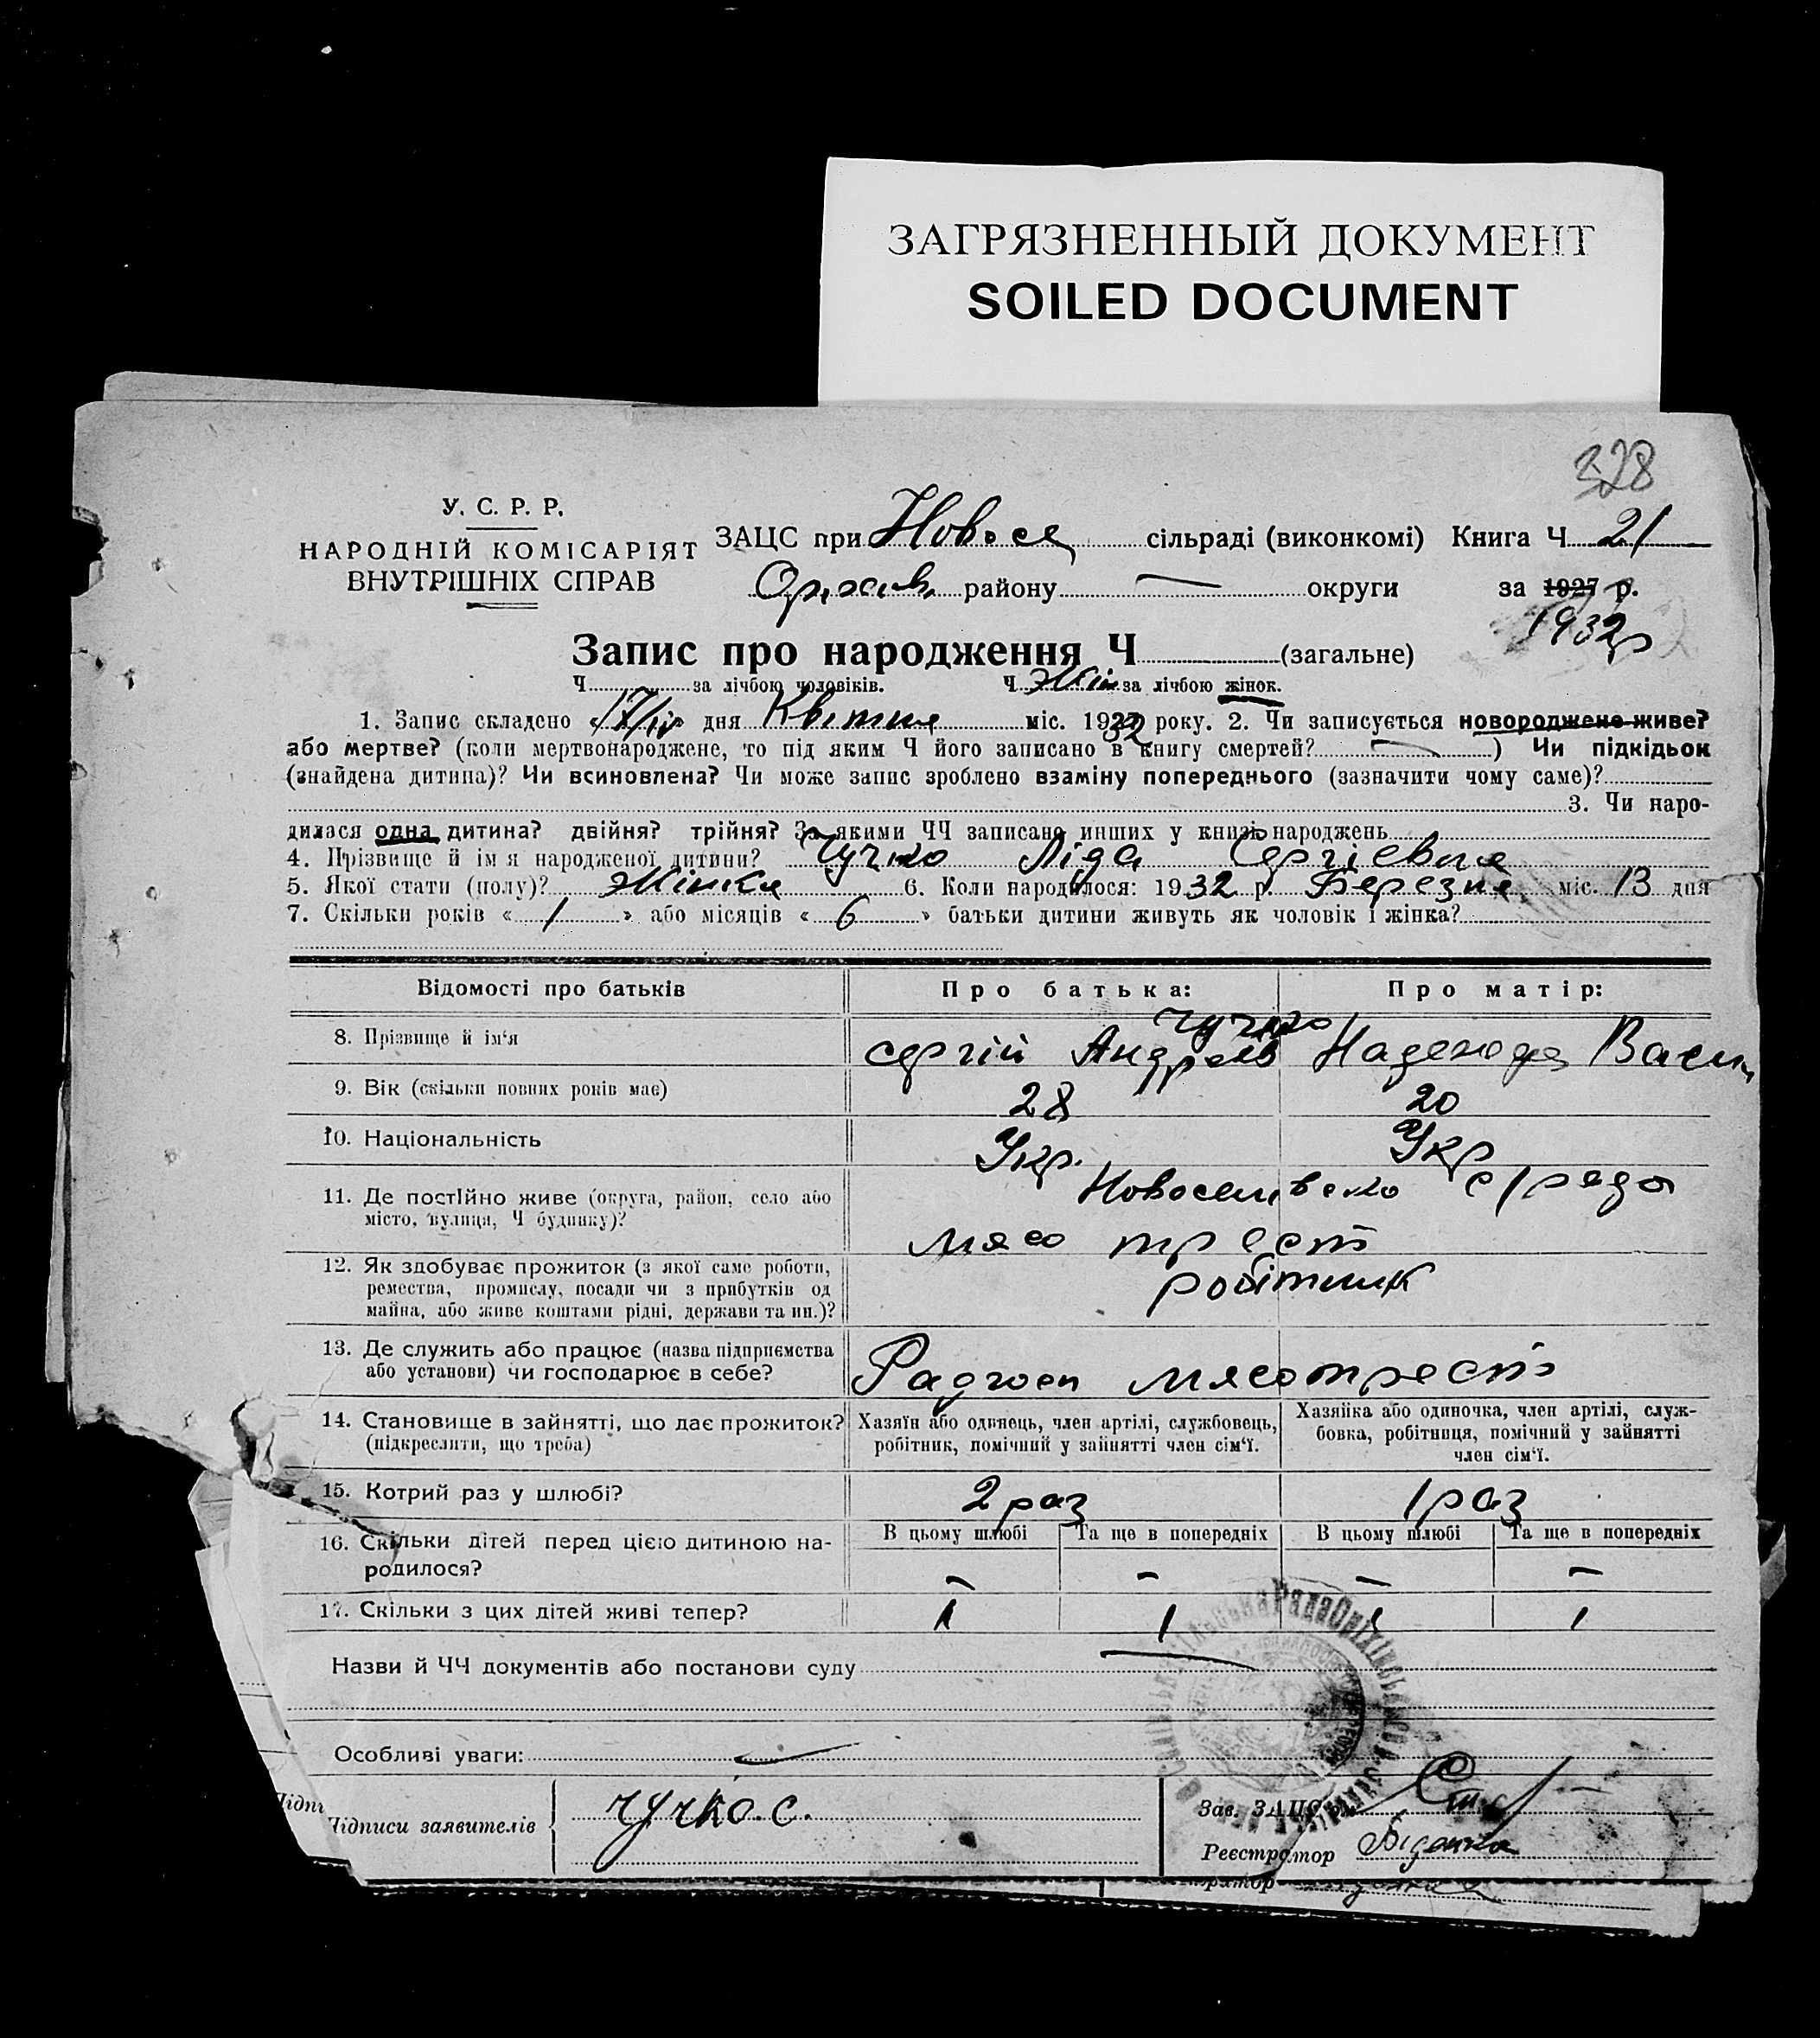 ЗАГРЯЗНЕННЫЙ ДОКУМЕНТ
SOILED DOCUMENT
328
У. С. Р. Р.
НАРОДНІЙ КОМІСАРІЯТ
ВНУТРІШНІХ СПРАВ
ЗАЦС при Новосе сільраді (виконкомі) Книга Ч 21
Оріхів району — округи за 1927 р.
1932р
Запис про народження Ч (загальне)
Ч за лічбою чоловіків. Ч Жін за лічбою жінок.
1. Запис складено «17/IV» дня Квітня міс. 1932 року. 2. Чи записується новороджене живе?
або мертве? (коли мертвонароджене, то під яким Ч його записано в книгу смертей? — ) Чи підкідьок
(знайдена дитина)? Чи всиновлена? Чи може запис зроблено взаміну попереднього (зазначити чому саме)?
3. Чи наро-
дилася одна дитина? двійня? трійня? За якими ЧЧ записано инших у книзі народжень
4. Прізвище й ім'я народженої дитини? Чучко Ліда Сергіевна
5. Якої стати (полу)? Жінка 6. Коли народилося: 1932 р. Березня міс. 13 дня
7. Скільки років « 1 » або місяців « 6 » батьки дитини живуть як чоловік і жінка?
Відомості про батьків Про батька: Про матір:
Чучко
8. Прізвище й ім'я Сергій Андреев Надежда Васил
9. Вік (скільки повних років має) 28 20
10. Національність Укр. Укр
11. Де постійно живе (округа, район, село або Новоселивско с/рада
місто, вулиця, Ч будинку)? мясо трест
12. Як здобуває прожиток (з якої саме роботи, робітник
ремества, промислу, посади чи з прибутків од
майна, або живе коштами рідні, держави та ин.)?
13. Де служить або працює (назва підприємства
або установи) чи господарює в себе? Радгосп мясотрест
14. Становище в зайнятті, що дає прожиток? Хазяїн або одинець, член артілі, службовець, Хазяйка або одиночка, член артілі, служ-
(підкреслити, що треба) робітник, помічний у зайнятті член сім'ї. бовка, робітниця, помічний у зайнятті
член сім'ї.
15. Котрий раз у шлюбі? 2 раз 1 раз
16. Скільки дітей перед цією дитиною на- В цьому шлюбі Та ще в попередніх В цьому шлюбі Та ще в попередніх
родилося? — — — —
17. Скільки з цих дітей живі тепер? 1 1 1 1
Назви й ЧЧ документів або постанови суду —
Особливі уваги: —
Підписи заявителів Чучко.С.
Зав. ЗАЦС'ом
Реєстратор